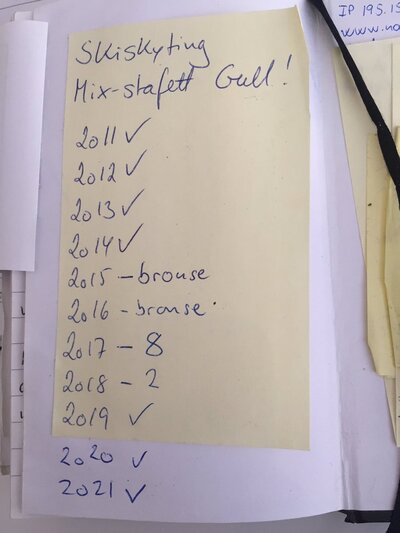 Skiskyting
Mix-stafett Gull!
2011 ✓
2012 ✓
2013 ✓
2014 ✓
2015 - bronse
2016 - bronse
2017 - 8
2018 - 2
2019 ✓
2020 ✓
2021 ✓
IP 195.15
www.no